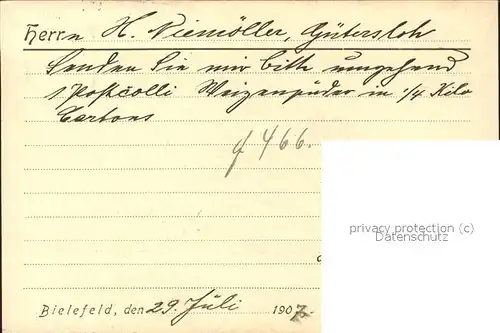 Herrn H. Niemöller, Gütersloh
Senden Sie mir bitte umgehend
1 Postcolli Weizenpuder in 1/4 Kilo
Cartons
466.
privacy protection (c)
Datenschutz
Bielefeld, den 29. Juli 1907